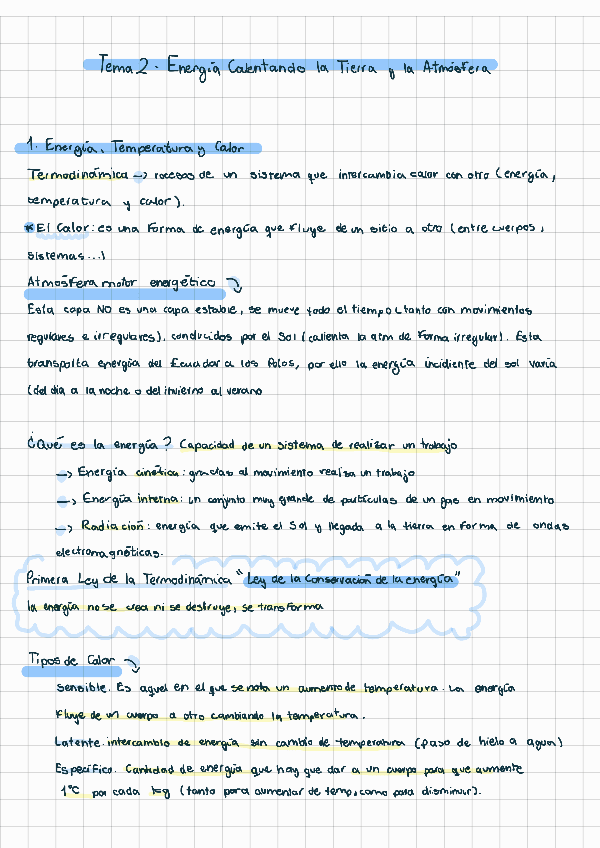 Tema 2 · Energía Calentando la Tierra y la Atmósfera
1. Energía, Temperatura y Calor
Termodinámica -> rocesos de un sistema que intercambia calor con otro (energía,
temperatura y calor).
*El Calor: es una forma de energía que fluye de un sitio a otro (entre cuerpos,
sistemas...)
Atmósfera motor energético
Esta capa NO es una capa estable, se mueve todo el tiempo (tanto con movimientos
regulares e irregulares), conducidos por el Sol (calienta la atm de forma irregular). Esta
transporta energía del Ecuador a los Polos, por ello la energía incidiente del sol varía
(del día a la noche o del invierno al verano
¿Qué es la energía? Capacidad de un sistema de realizar un trabajo
-> Energía cinética: gracias al movimiento realiza un trabajo
-> Energía interna: un conjunto muy grande de partículas de un gas en movimiento
-> Radiación: energía que emite el Sol y llegada a la tierra en forma de ondas
electromagnéticas.
Primera Ley de la Termodinámica "Ley de la Conservación de la energía"
la energía no se crea ni se destruye, se transforma
Tipos de Calor
Sensible. Es aquel en el que se nota un aumento de temperatura. La energía
fluye de un cuerpo a otro cambiando la temperatura.
Latente. intercambio de energía sin cambio de temperatura (paso de hielo a agua)
Específico. Cantidad de energía que hay que dar a un cuerpo para que aumente
1°C por cada kg (tanto para aumentar de temp, como para disminuir).